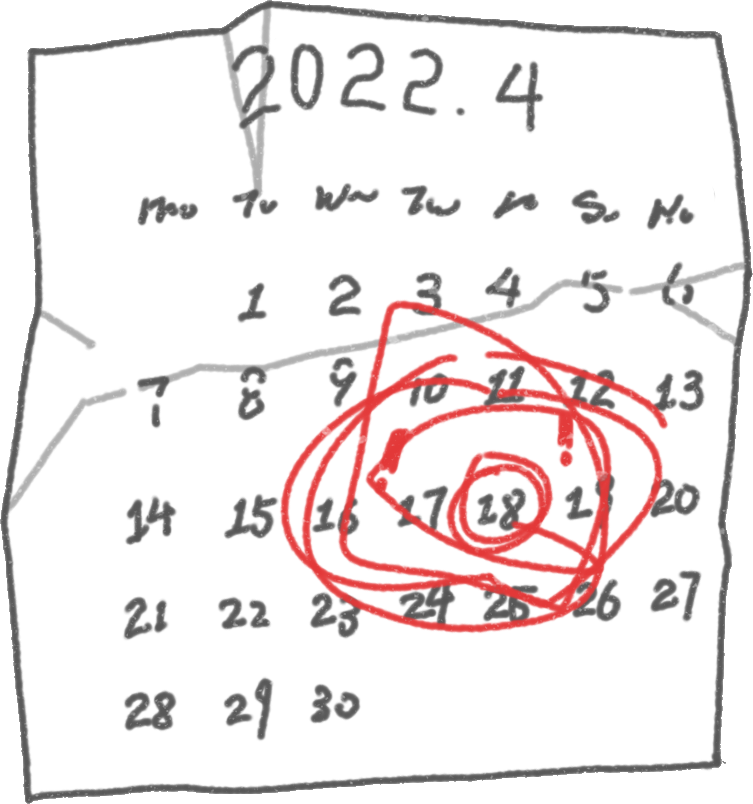 2022.4
Mo Tu We Tw Fr Sa No
1 2 3 4 5 6
7 8 9 10 11 12 13
! !
14 15 16 17 18 19 20
21 22 23 24 25 26 27
28 29 30